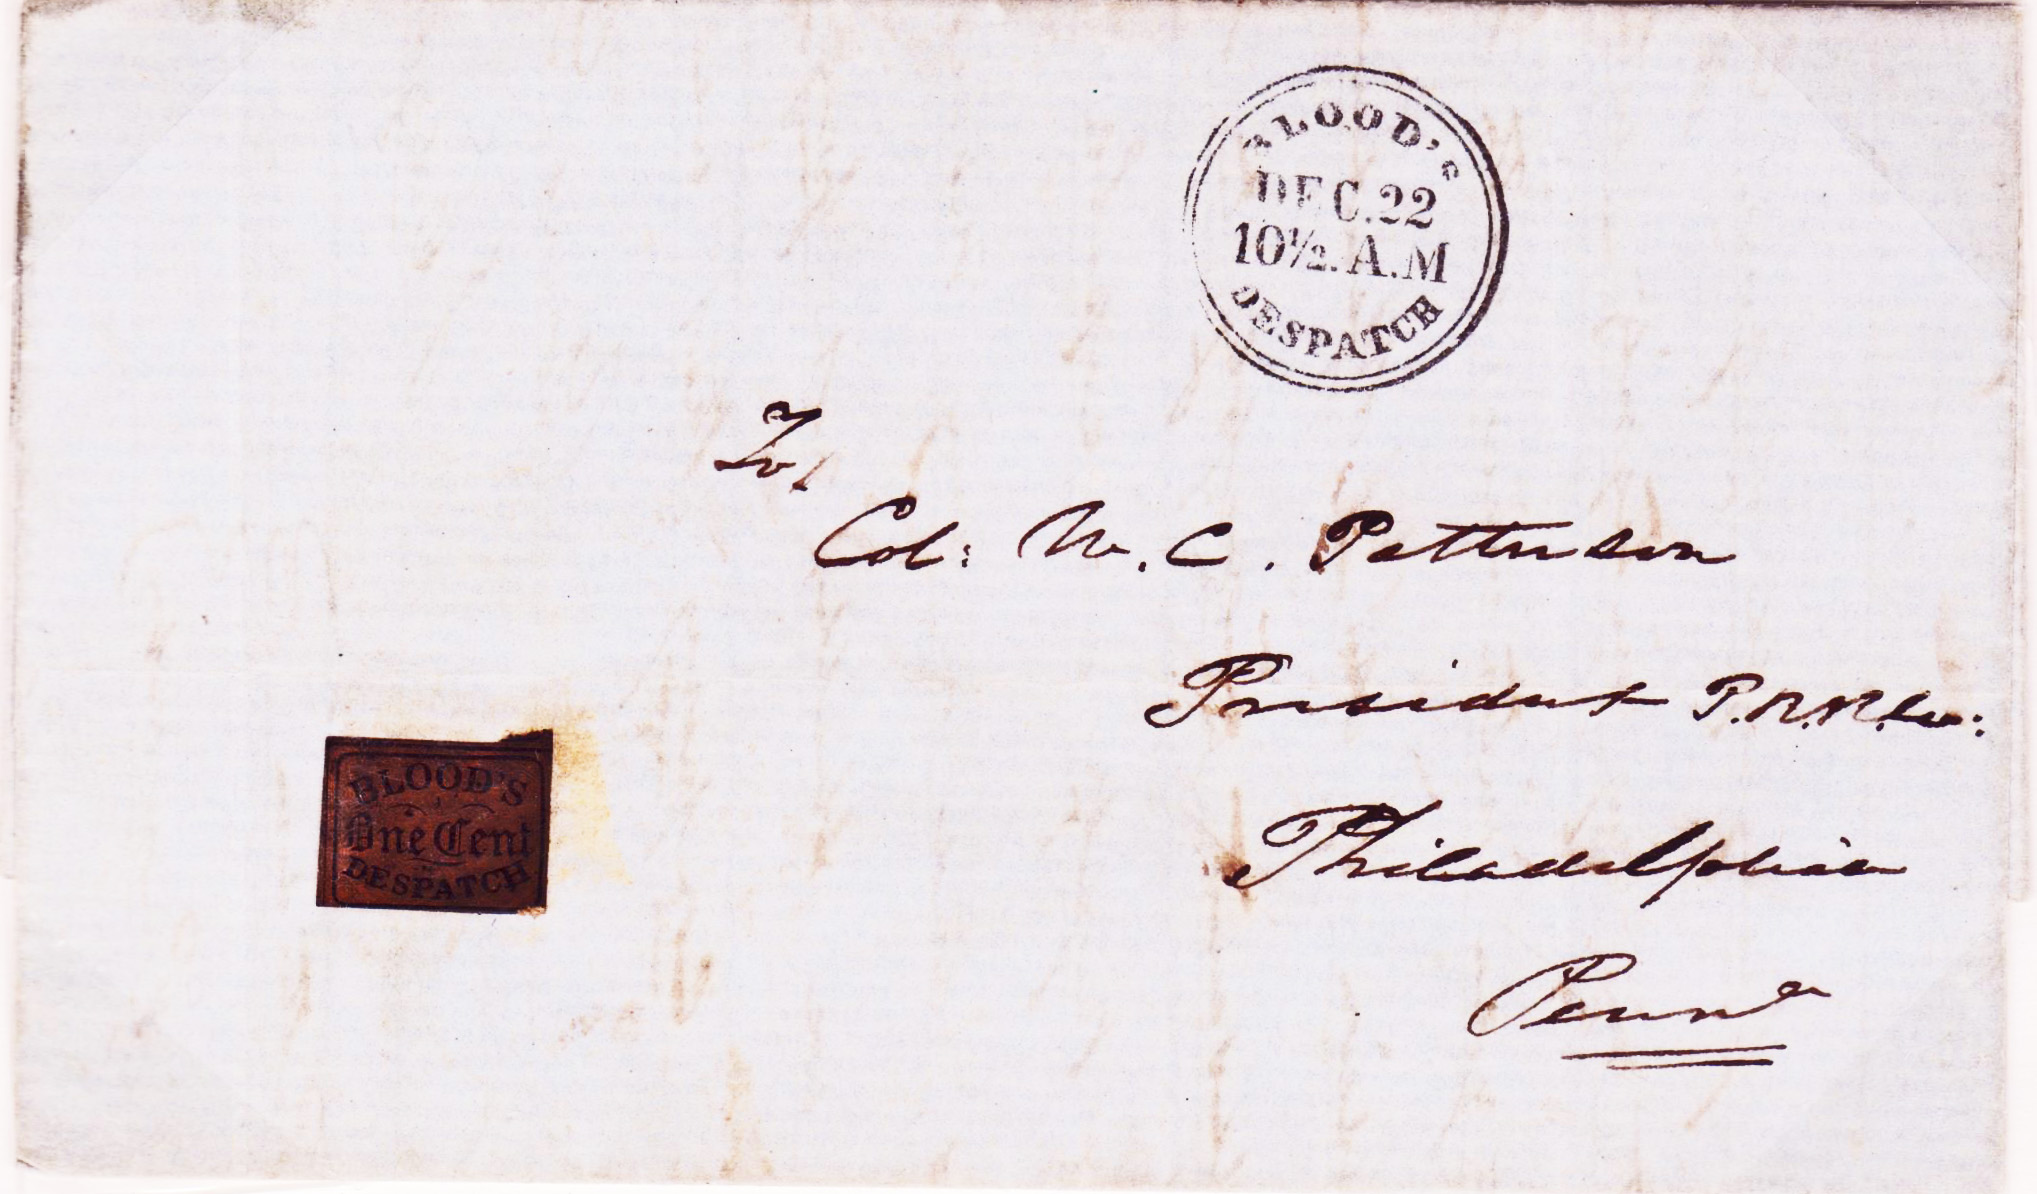 BLOOD'S
DEC. 22
10½. A.M
DESPATCH
To/
Col: W. C. Patterson
President P.R.R.Co:
Philadelphia
Penna
BLOOD'S
One Cent
DESPATCH